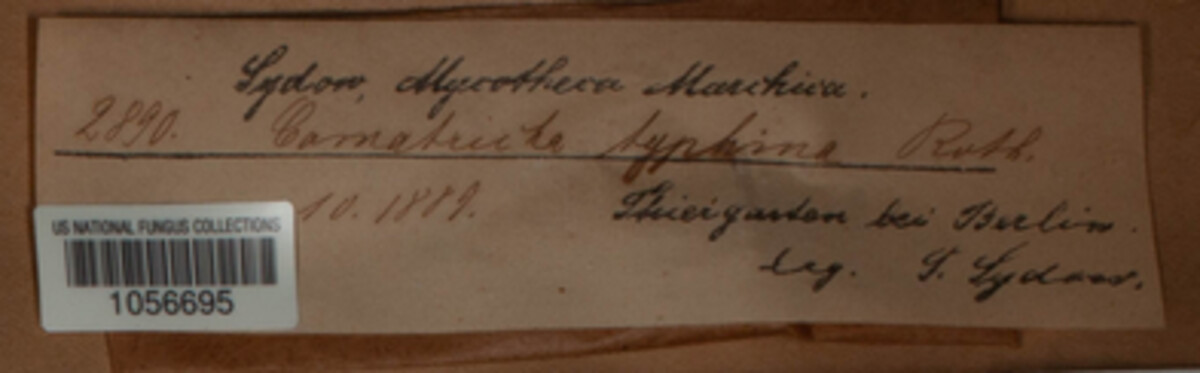 Sydow, Mycotheca Marchica.
2890. Comatricha typhina Roth.
10. 1889.
Thiergarten bei Berlin.
leg. P. Sydow.
US NATIONAL FUNGUS COLLECTIONS
1056695